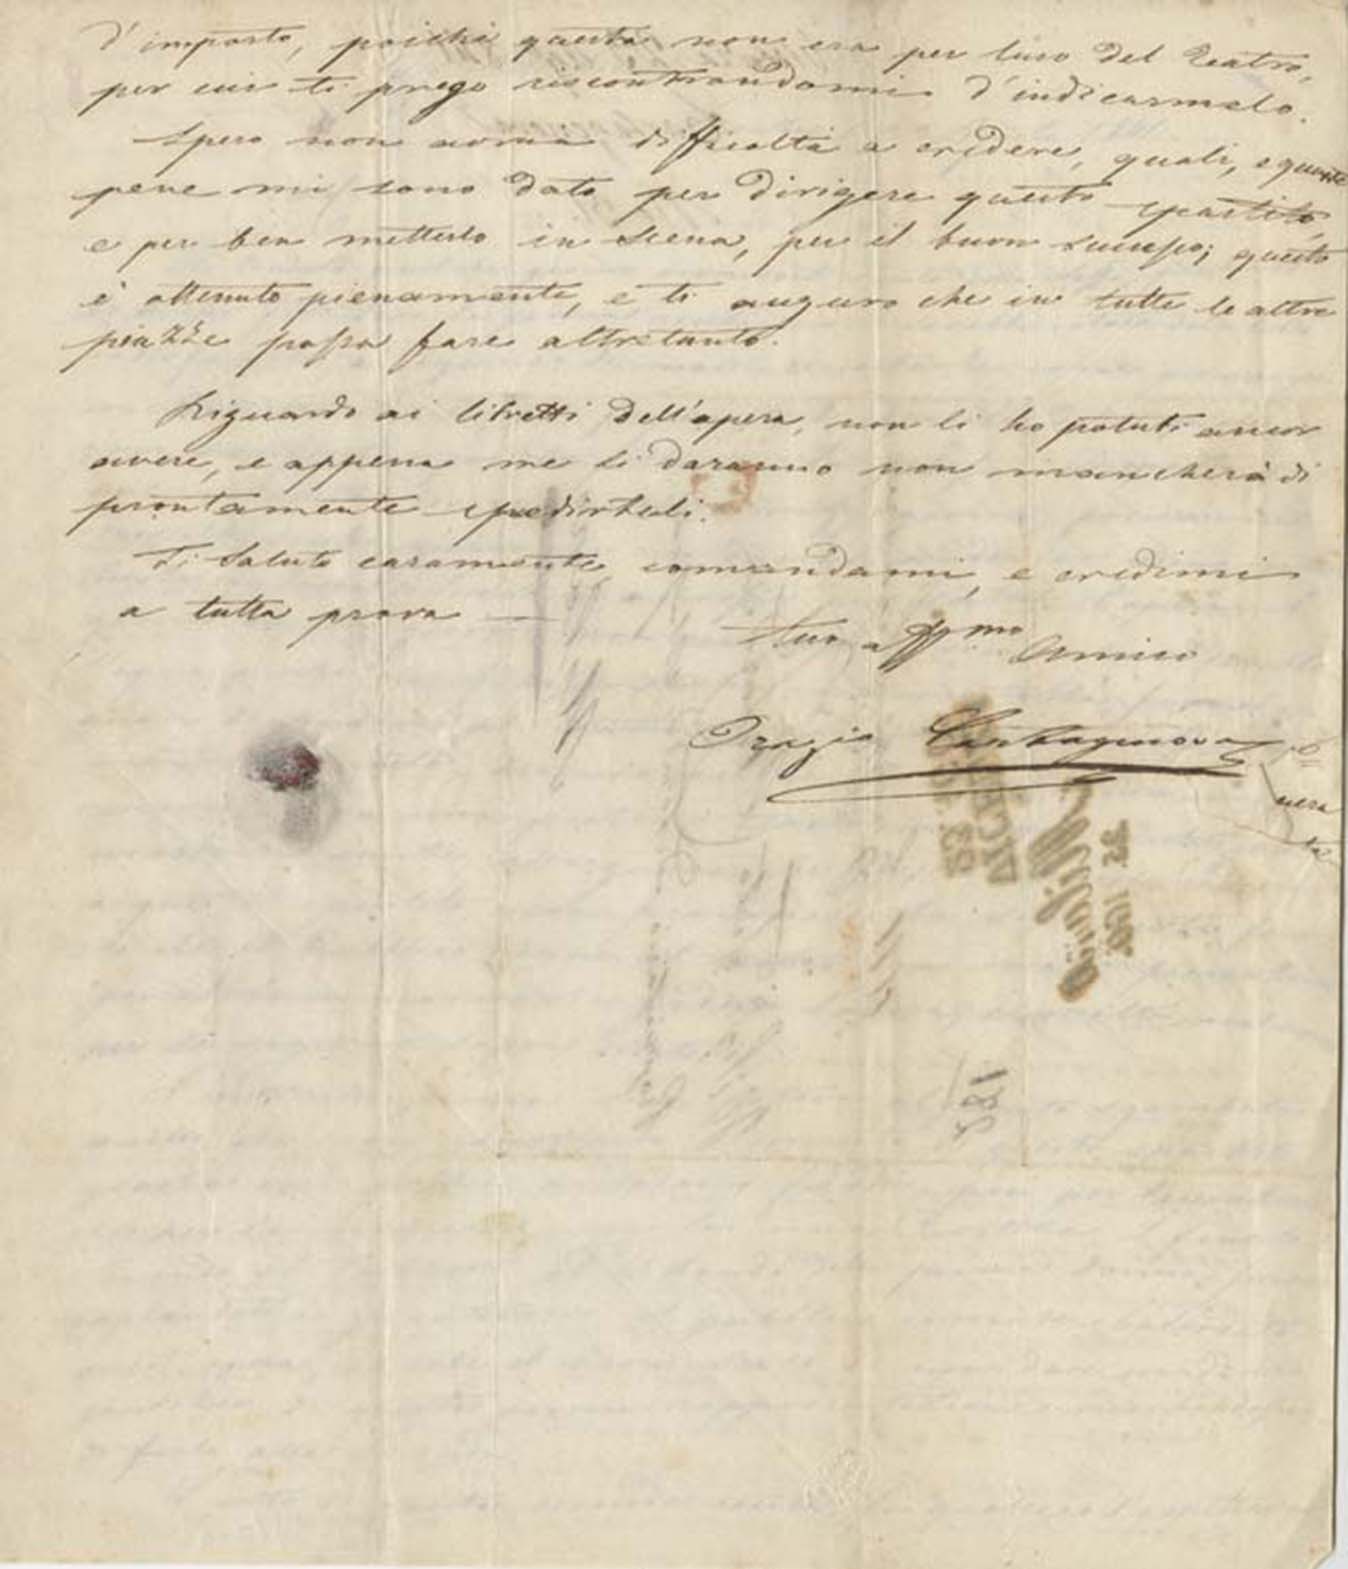 d'importo, poichè questa non era per l'uso del Teatro,
per cui ti prego riscontrandomi d'indicarmelo.
Spero non avrai difficoltà a credere, quali, e quante
pene mi sono dato per dirigere questo spartito,
e per ben metterlo in Scena, per il buon successo; questo
è ottenuto pienamente, e ti auguro che in tutte le altre
piazze possa fare altretanto.
Riguardo ai libretti dell'opera, non li ho potuti ancor
avere, e appena me li daranno non mancherò di
prontamente spedirteli.
Ti Saluto caramente comandami, e credimi
a tutta prova —
tuo affmo Amico
Orazio Cartagenova